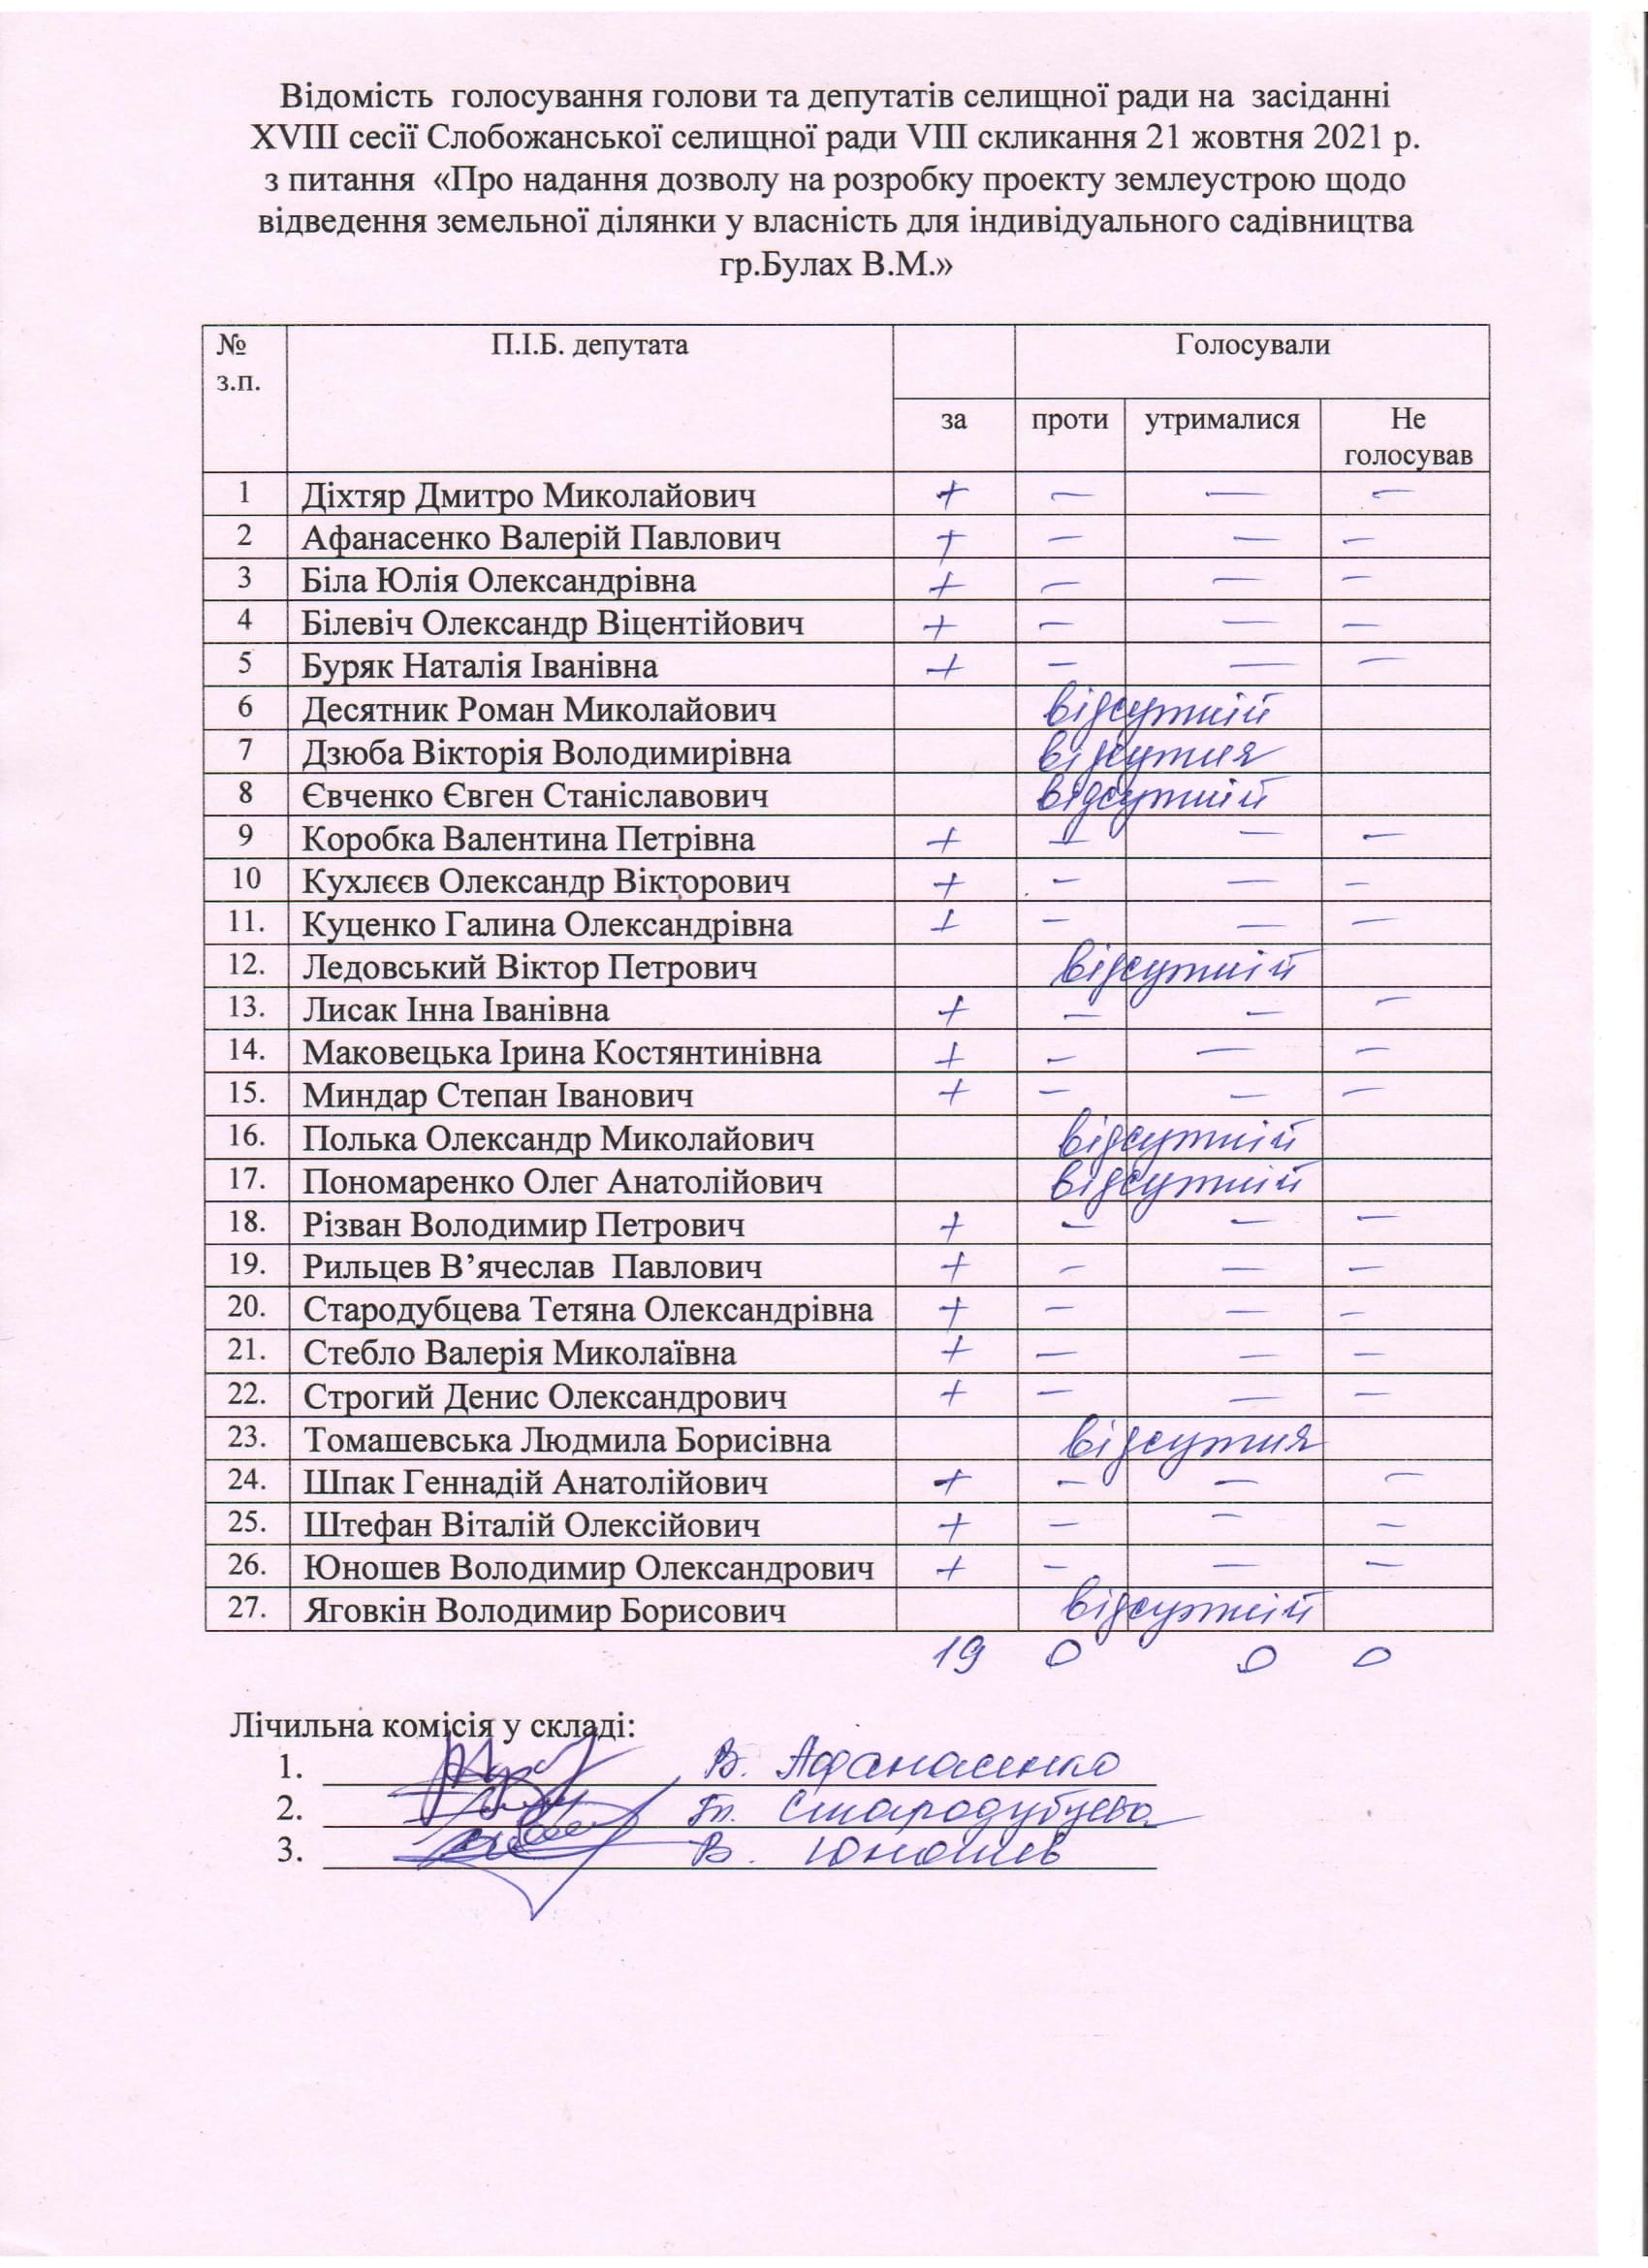 Відомість голосування голови та депутатів селищної ради на засіданні
XVIII сесії Слобожанської селищної ради VIII скликання 21 жовтня 2021 р.
з питання «Про надання дозволу на розробку проекту землеустрою щодо
відведення земельної ділянки у власність для індивідуального садівництва
гр.Булах В.М.»
№ з.п. П.І.Б. депутата Голосували
за проти утрималися Не голосував
1 Діхтяр Дмитро Миколайович + — — —
2 Афанасенко Валерій Павлович + — — —
3 Біла Юлія Олександрівна + — — —
4 Білевіч Олександр Віцентійович + — — —
5 Буряк Наталія Іванівна + — — —
6 Десятник Роман Миколайович відсутній
7 Дзюба Вікторія Володимирівна відсутня
8 Євченко Євген Станіславович відсутній
9 Коробка Валентина Петрівна + — — —
10 Кухлєєв Олександр Вікторович + — — —
11. Куценко Галина Олександрівна + — — —
12. Ледовський Віктор Петрович відсутній
13. Лисак Інна Іванівна + — — —
14. Маковецька Ірина Костянтинівна + — — —
15. Миндар Степан Іванович + — — —
16. Полька Олександр Миколайович відсутній
17. Пономаренко Олег Анатолійович відсутній
18. Різван Володимир Петрович + — — —
19. Рильцев В’ячеслав Павлович + — — —
20. Стародубцева Тетяна Олександрівна + — — —
21. Стебло Валерія Миколаївна + — — —
22. Строгий Денис Олександрович + — — —
23. Томашевська Людмила Борисівна відсутня
24. Шпак Геннадій Анатолійович + — — —
25. Штефан Віталій Олексійович + — — —
26. Юношев Володимир Олександрович + — — —
27. Яговкін Володимир Борисович відсутній
19 0 0 0
Лічильна комісія у складі:
1. В. Афанасенко
2. Т. Стародубцева
3. В. Юношев